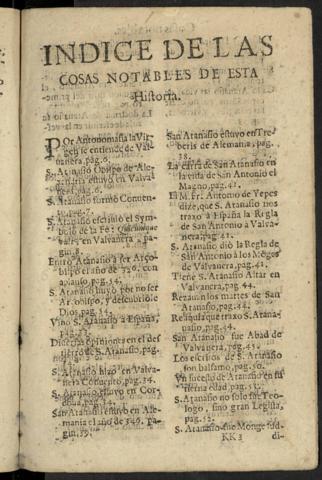 INDICE DE LAS
COSAS NOTABLES DE ESTA
Historia.
POr Antonomasia la Vir-
gen se entiende de Val-
vanera, pag. 6.
S. Atanasio Obispo de Ale-
xandria estuvo en Valva-
nera, pag. 6.
S. Atanasio formò Conven-
to, pag. 7.
S. Atanasio escriviò el Symbo-
lo de la Fè: Quicumque
vult, en Valvanera, pa-
gin. 8.
Entrò Atanasio à ser Arço-
bispo el año de 326. con
aplauso, pag. 34.
S. Atanasio huyò, por no ser
Arçobispo, y descubriòle
Dios, pag. 34.
Vino S. Atanasio à España,
pag. 33.
Diversas opiniones en el des-
tierro de S. Atanasio, pag.
S. Atanasio hizo en Valva-
nera Convento, pag. 34.
S. Atanasio estuvo en Cor-
dova, pag. 34.
San Atanasio estuvo en Ale-
mania el año de 346. pa-
gin. 39.
San Atanasio estuvo en Tre-
beris de Alemania, pag.
38.
La carta de San Atanasio en
la vida de San Antonio el
Magno, pag. 41.
El M. Fr. Antonio de Yepes
dize, que S. Atanasio nos
traxo à España la Regla
de San Antonio à Valva-
nera, pag. 41.
S. Atanasio diò la Regla de
San Antonio à los Monges
de Valvanera, pag. 41.
Tiene S. Atanasio Altar en
Valvanera, pag. 44.
Rezan los martes de San
Atanasio, pag. 44.
Retablo que traxo S. Atana-
nasio, pag. 44.
San Atanasio fue Abad de
Valvanera, pag. 45.
Los escritos de S. Atanasio
son balsamo, pag. 50.
Vn sucesso de Atanasio en su
tierna edad, pag. 51.
S. Atanasio no solo fue Teo-
logo, sino gran Legista,
pag. 52.
S. Atanasio fue Monge sud-
KK 3 di-